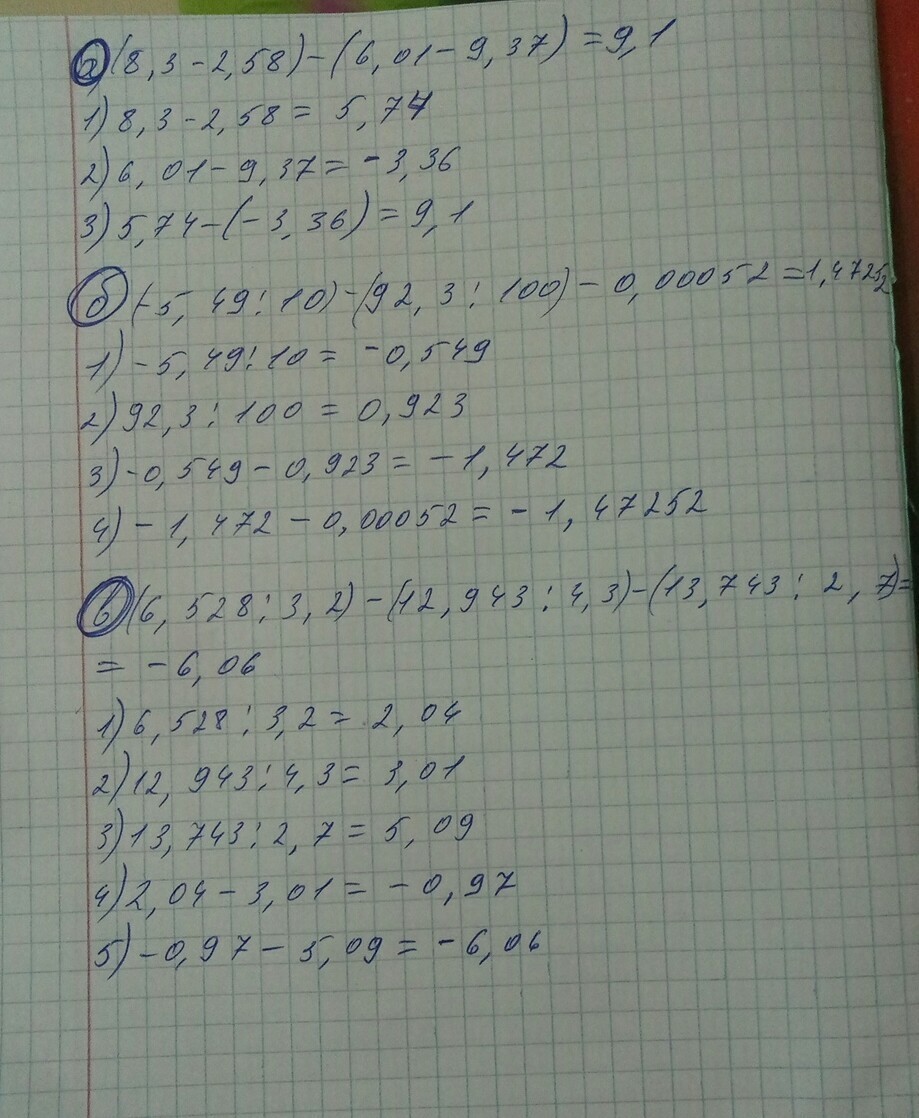 а) (8,3-2,58)-(6,01-9,37)=9,1
1) 8,3-2,58= 5,74
2) 6,01-9,37=-3,36
3) 5,74-(-3,36)=9,1
б) (-5,49:10)-(92,3:100)-0,00052=1,47252
1) -5,49:10= -0,549
2) 92,3:100=0,923
3) -0,549-0,923=-1,472
4) -1,472-0,00052=-1,47252
в) (6,528:3,2)-(12,943:4,3)-(13,743:2,7)=
= -6,06
1) 6,528:3,2=2,04
2) 12,943:4,3=3,01
3) 13,743:2,7=5,09
4) 2,04-3,01=-0,97
5) -0,97-5,09=-6,06